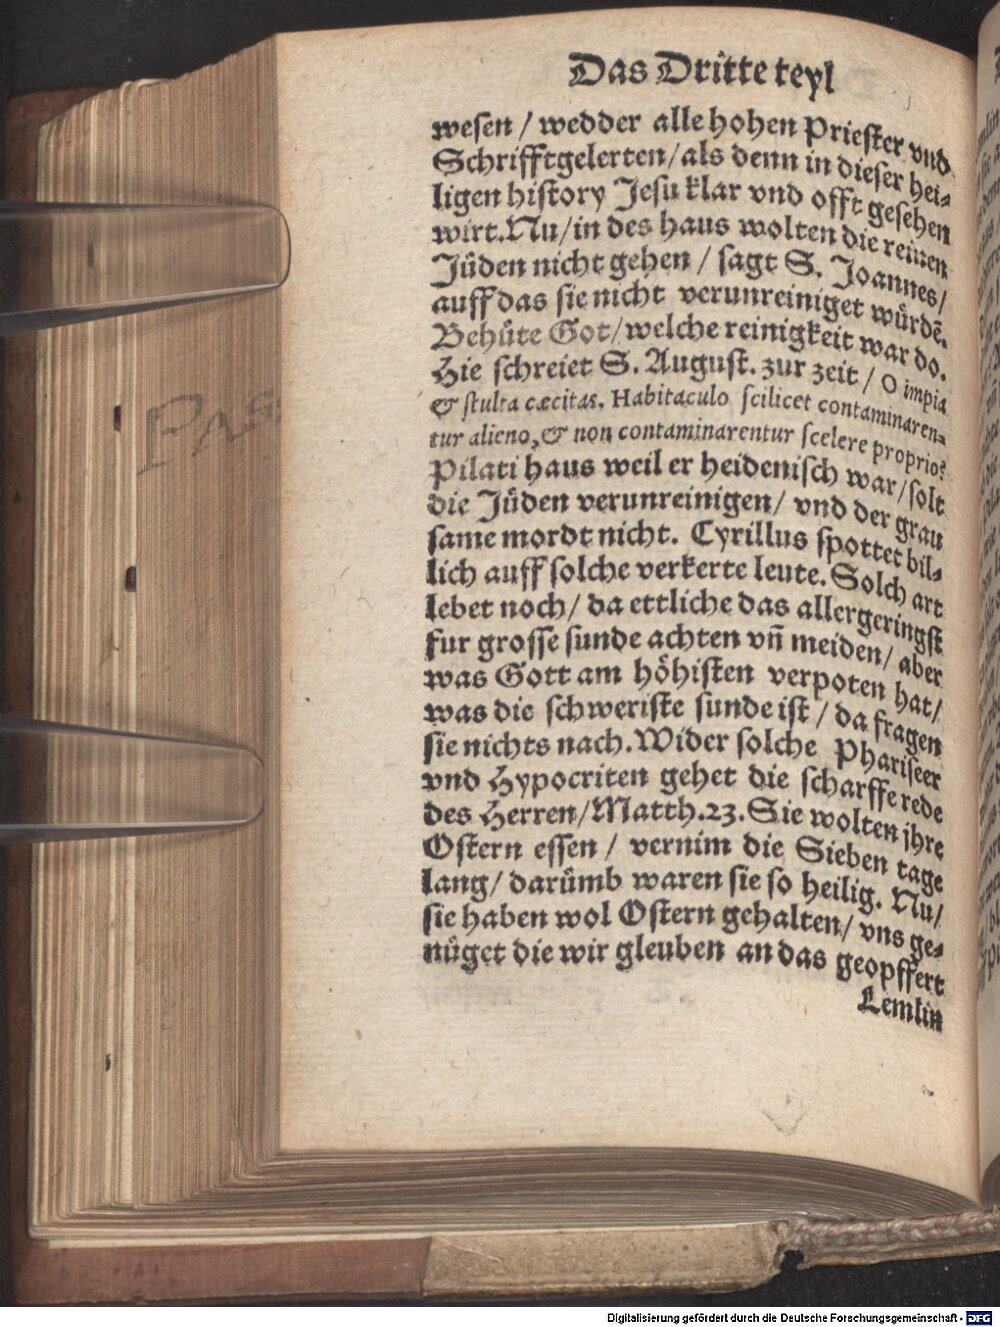 Das Dritte teyl
wesen / wedder alle hohen Priester vnd
Schrifftgelerten / als denn in dieser hei⸗
ligen history Jesu klar vnd offt gesehen
wirt. Nu / in des haus wolten die reinen
Jüden nicht gehen / sagt S. Joannes /
auff das sie nicht verunreiniget würdē.
Behüte Got / welche reinigkeit war do.
Hie schreiet S. August. zur zeit / O impia
& stulta cæcitas. Habitaculo scilicet contaminaren⸗
tur alieno, & non contaminarentur scelere proprio?
Pilati haus weil er heidenisch war / solt
die Jüden verunreinigen / vnd der grau
same mordt nicht. Cyrillus spottet bil⸗
lich auff solche verkerte leute. Solch art
lebet noch / da ettliche das allergeringst
fur grosse sunde achten vñ meiden / aber
was Gott am höhisten verpoten hat /
was die schweriste sunde ist / da fragen
sie nichts nach. Wider solche Phariseer
vnd Hypocriten gehet die scharffe rede
des Herren / Matth. 23. Sie wolten jhre
Ostern essen / vernim die Sieben tage
lang / darümb waren sie so heilig. Nu /
sie haben wol Ostern gehalten / vns ge⸗
nüget die wir gleuben an das geopffert
Lemlin
Digitalisierung gefördert durch die Deutsche Forschungsgemeinschaft - DFG